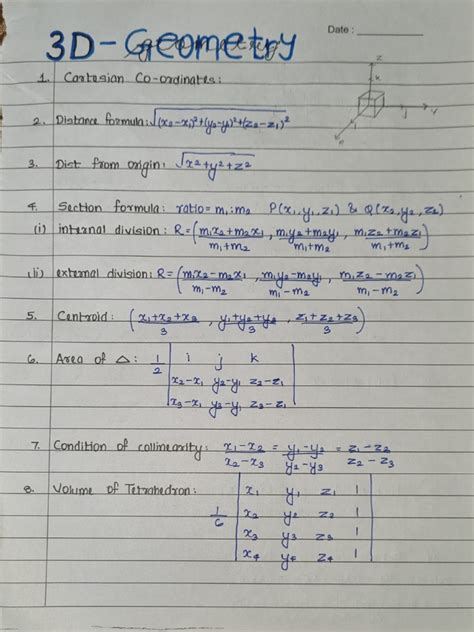 3D-Geometry
Date :
1. Cartesian Co-ordinates:
z
k
j
y
i
2. Distance formula: √(x₂-x₁)²+(y₂-y₁)²+(z₂-z₁)²
3. Dist from origin: √x²+y²+z²
4. Section formula: ratio=m₁:m₂ P(x₁,y₁,z₁) & Q(x₂,y₂,z₂)
(i) internal division: R=(m₁x₂+m₂x₁/m₁+m₂, m₁y₂+m₂y₁/m₁+m₂, m₁z₂+m₂z₁/m₁+m₂)
(ii) external division: R=(m₁x₂-m₂x₁/m₁-m₂, m₁y₂-m₂y₁/m₁-m₂, m₁z₂-m₂z₁/m₁-m₂)
5. Centroid: (x₁+x₂+x₃/3, y₁+y₂+y₃/3, z₁+z₂+z₃/3)
6. Area of Δ: 1/2 | i j k |
| x₂-x₁ y₂-y₁ z₂-z₁ |
| x₃-x₁ y₃-y₁ z₃-z₁ |
7. Condition of collinearity: x₁-x₂/x₂-x₃ = y₁-y₂/y₂-y₃ = z₁-z₂/z₂-z₃
8. Volume of Tetrahedron: 1/6 | x₁ y₁ z₁ 1 |
| x₂ y₂ z₂ 1 |
| x₃ y₃ z₃ 1 |
| x₄ y₄ z₄ 1 |